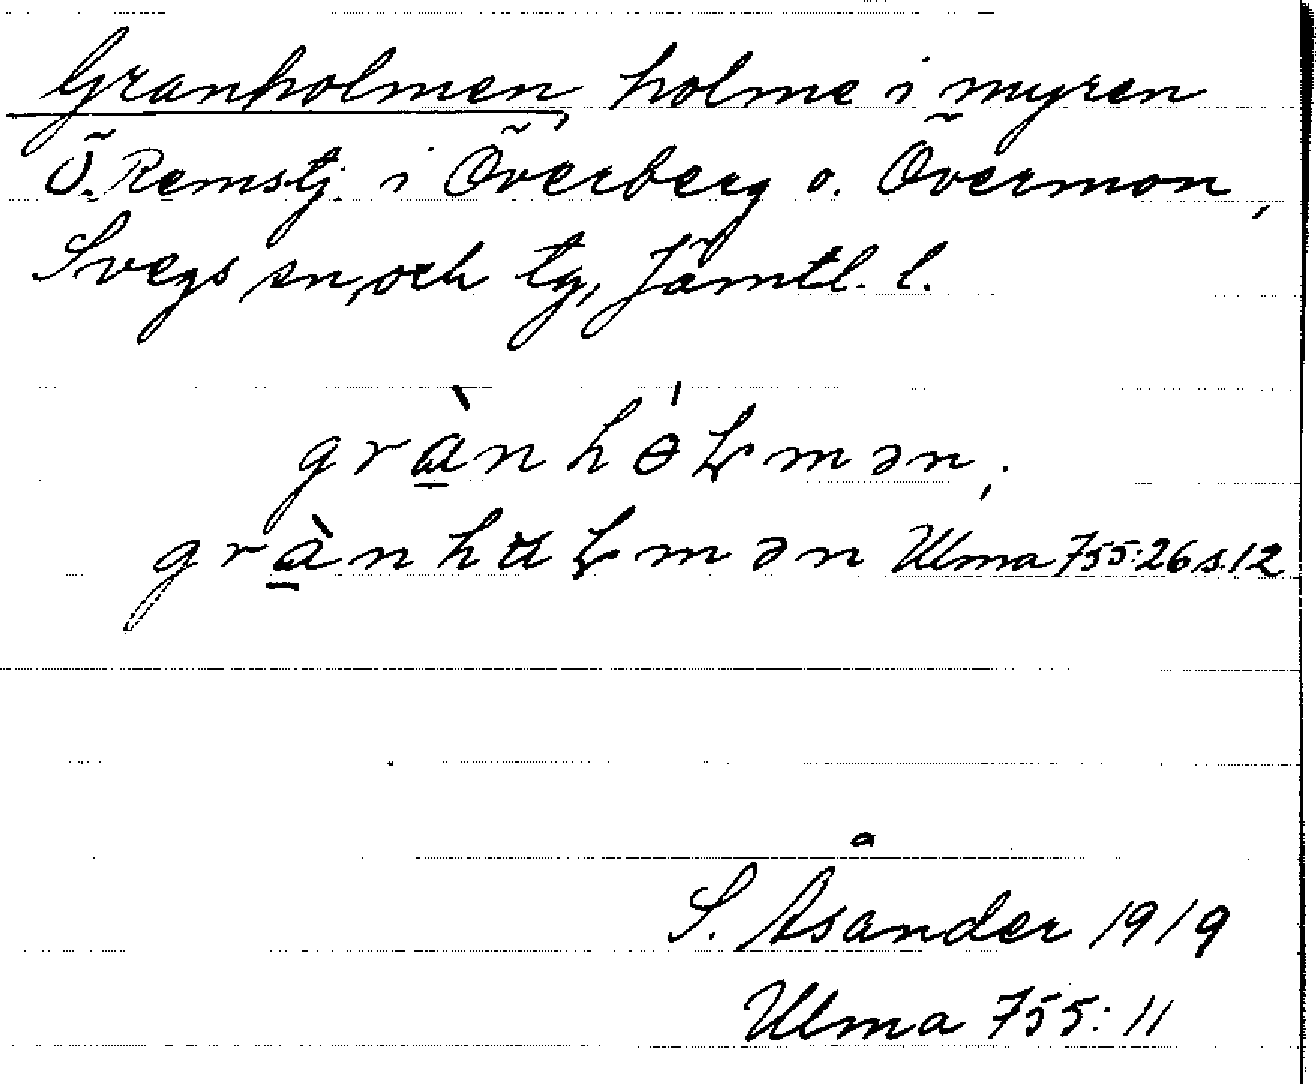 Granholmen, holme i myren
Ö. Remstj. i Överberg o. Övermon,
Svegs sn, och tg, Jämtl. l.
gràn hɵ́ɫmən,
grànhʉɫmən Ulma 755:26 s.12
S. Åsander 1919
Ulma 755:11